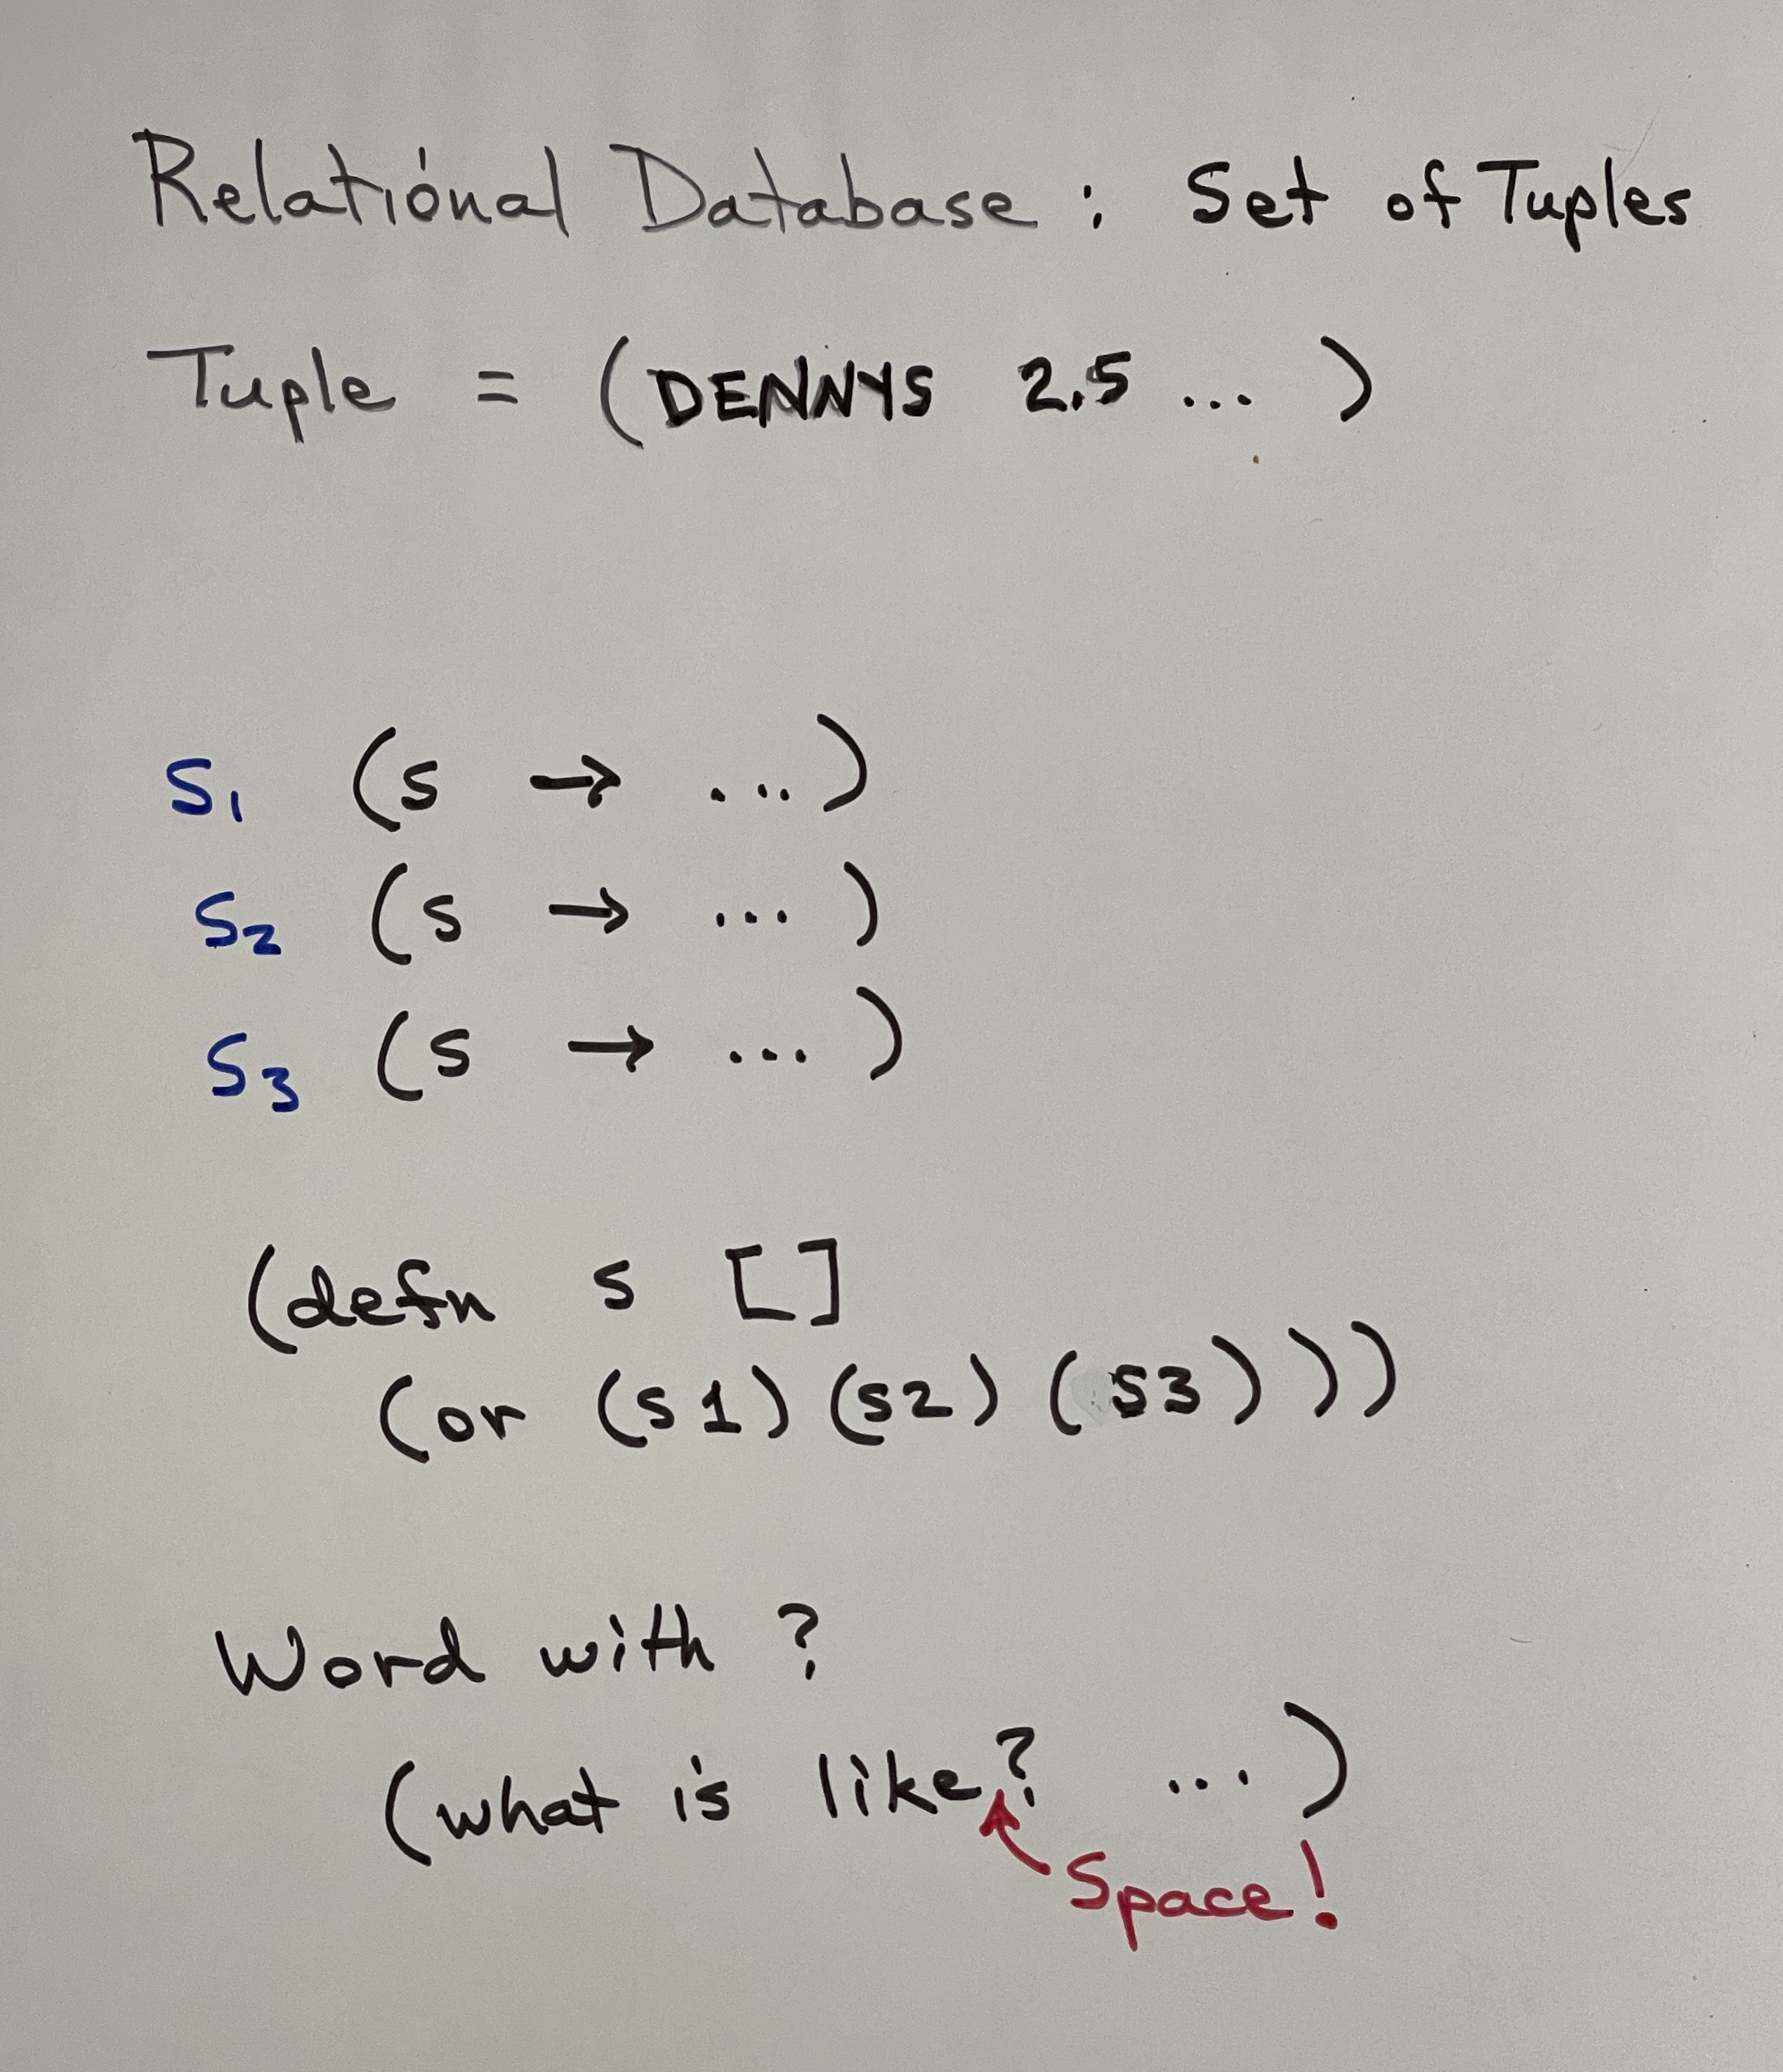 Relational Database : Set of Tuples
Tuple = (DENNYS 2.5 ... )
S1 (s → ...)
S2 (s → ... )
S3 (s → ... )
(defn s []
(or (s1) (s2) (s3)))
Word with ?
(what is like? ...)
Space!